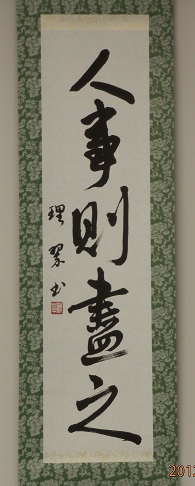 人事則盡之
理翠書
2012